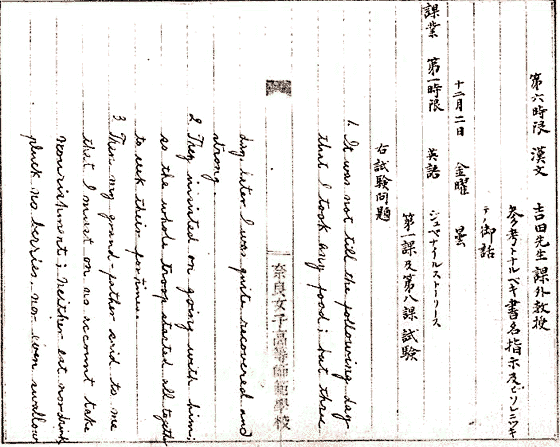 第六時限 漢文 吉田先生 課外教授
参考トナルベキ書名指示及ビソレニツキ
テノ御話
十二月二日 金曜 曇
課業 第一時限 英語 ジュベナイルストーリース
第一課及第八課試験
右試験問題
1. It was not till the following day
that I took any food; but three
day later I was quite recovered and
strong
2. They insisted on going with him;
so the whole troop started all togeth
to seek their fortunes.
3. Then my grand-father said to me
that I must on no account take
nourishment; neither eat nor drink
pluck no berries, nor even swallow
奈良女子高等師範學校